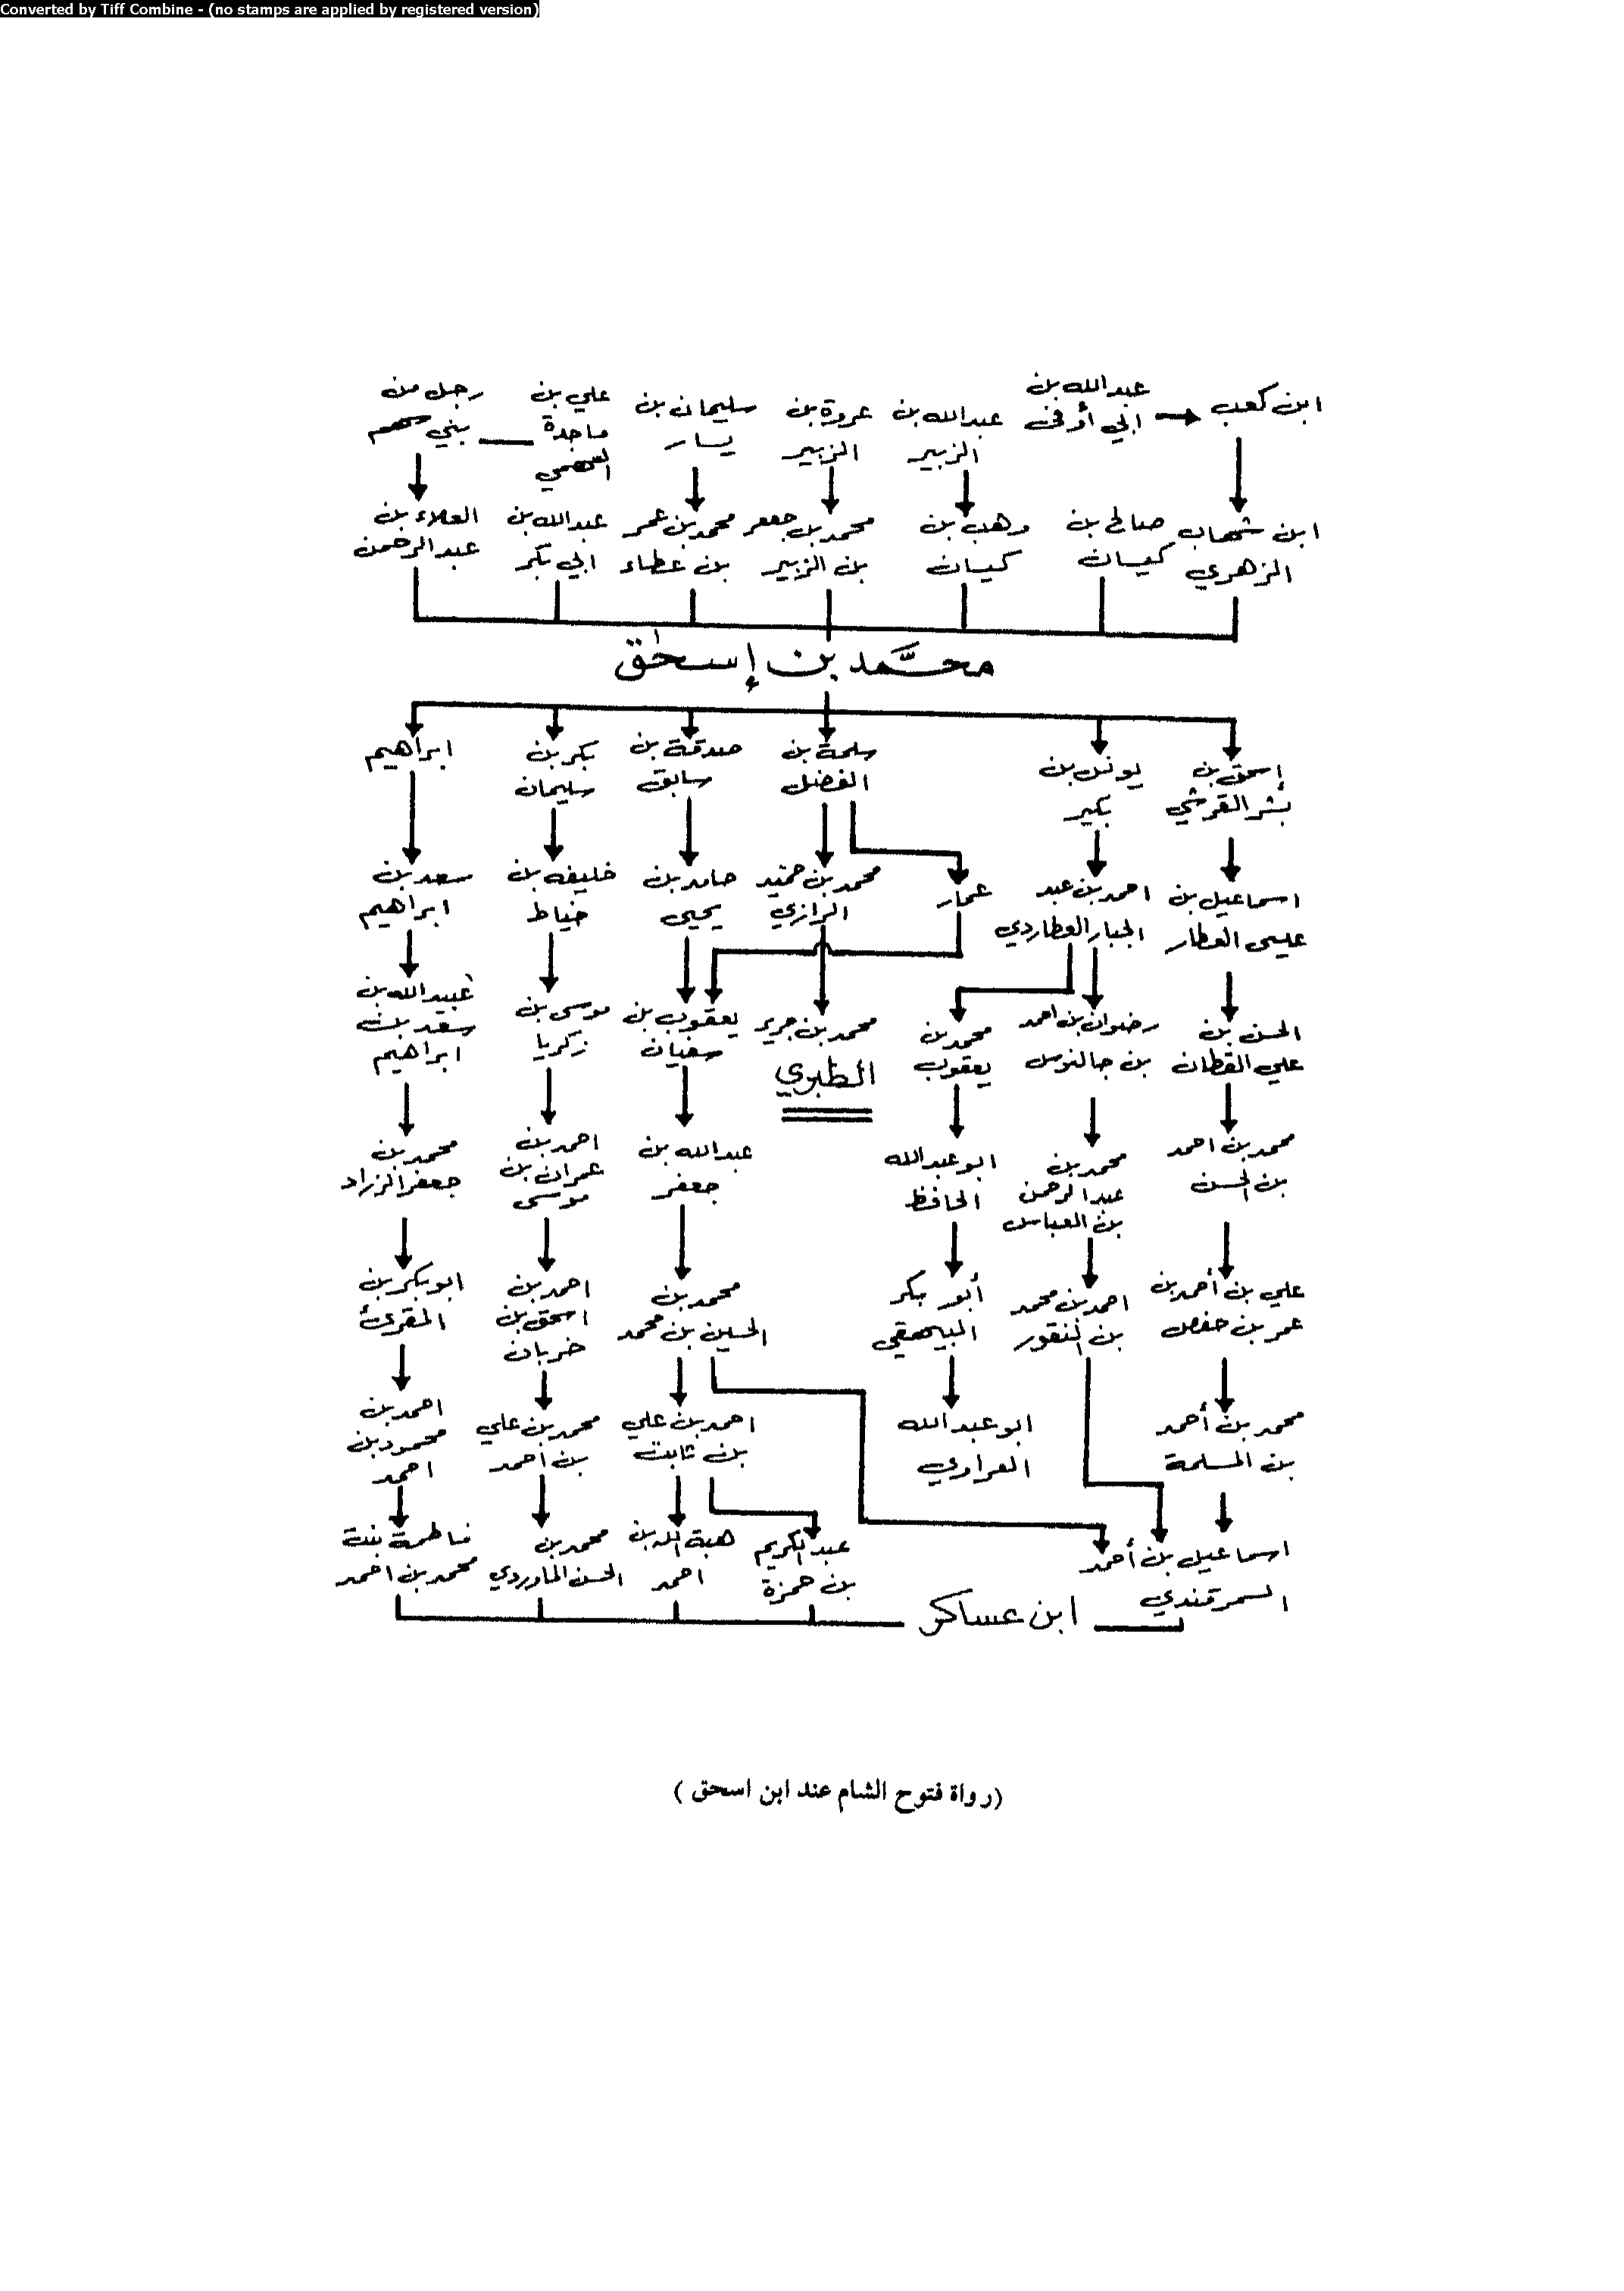 Converted by Tiff Combine - (no stamps are applied by registered version)
ابن كعب
عبدالله بن
ابي أوفى
عبدالله بن
الزبير
عروة بن
الزبير
سليمان بن
يسار
علي بن
ماجدة
السهمي
رجل من
بني سهم
ابن شهاب
الزهري
صالح بن
كيسان
وهب بن
كيسان
محمد بن جعفر
بن الزبير
محمد بن عمر
بن عطاء
عبدالله بن
ابي بكر
العلاء بن
عبدالرحمن
محمَّد بن إسحٰق
إسحق بن
بشر القرشي
يونس بن
بكير
سلمة بن
الفضل
صدقة بن
سابق
بكر بن
سليمان
ابراهيم
اسماعيل بن
عيسى العطار
احمد بن عبد
الجبار العطاردي
عمار
محمد بن حميد
الرازي
حامد بن
يحيى
خليفه بن
خياط
سعد بن
ابراهيم
الحسن بن
علي القطان
رضوان بن احمد
بن جالنوس
محمد بن
يعقوب
محمد بن جرير
الطبري
يعقوب بن
سفيان
موسى بن
زكريا
عبيد الله بن
سعد بن
ابراهيم
محمد بن احمد
بن الحسن
محمد بن
عبد الرحمن
بن العباس
ابو عبد الله
الحافظ
عبدالله بن
جعفر
احمد بن
عمران بن
موسى
محمد بن
جعفر الزراد
علي بن أحمد بن
عمر بن حفص
احمد بن محمد
بن النقور
أبو بكر
البيهقي
محمد بن
الحسين بن محمد
احمد بن
اسحق بن
خربان
ابو بكر بن
المقرئ
محمد بن أحمد
بن المسلمة
ابو عبد الله
الفراوي
احمد بن علي
بن ثابت
محمد بن علي
بن أحمد
احمد بن
محمود بن
احمد
اسماعيل بن أحمد
السمرقندي
عبد الكريم
بن حمزة
هبة الله بن
احمد
محمد بن
الحسن الماوردي
فاطمة بنت
محمد بن احمد
ابن عساكر
(رواة فتوح الشام عند ابن اسحق )